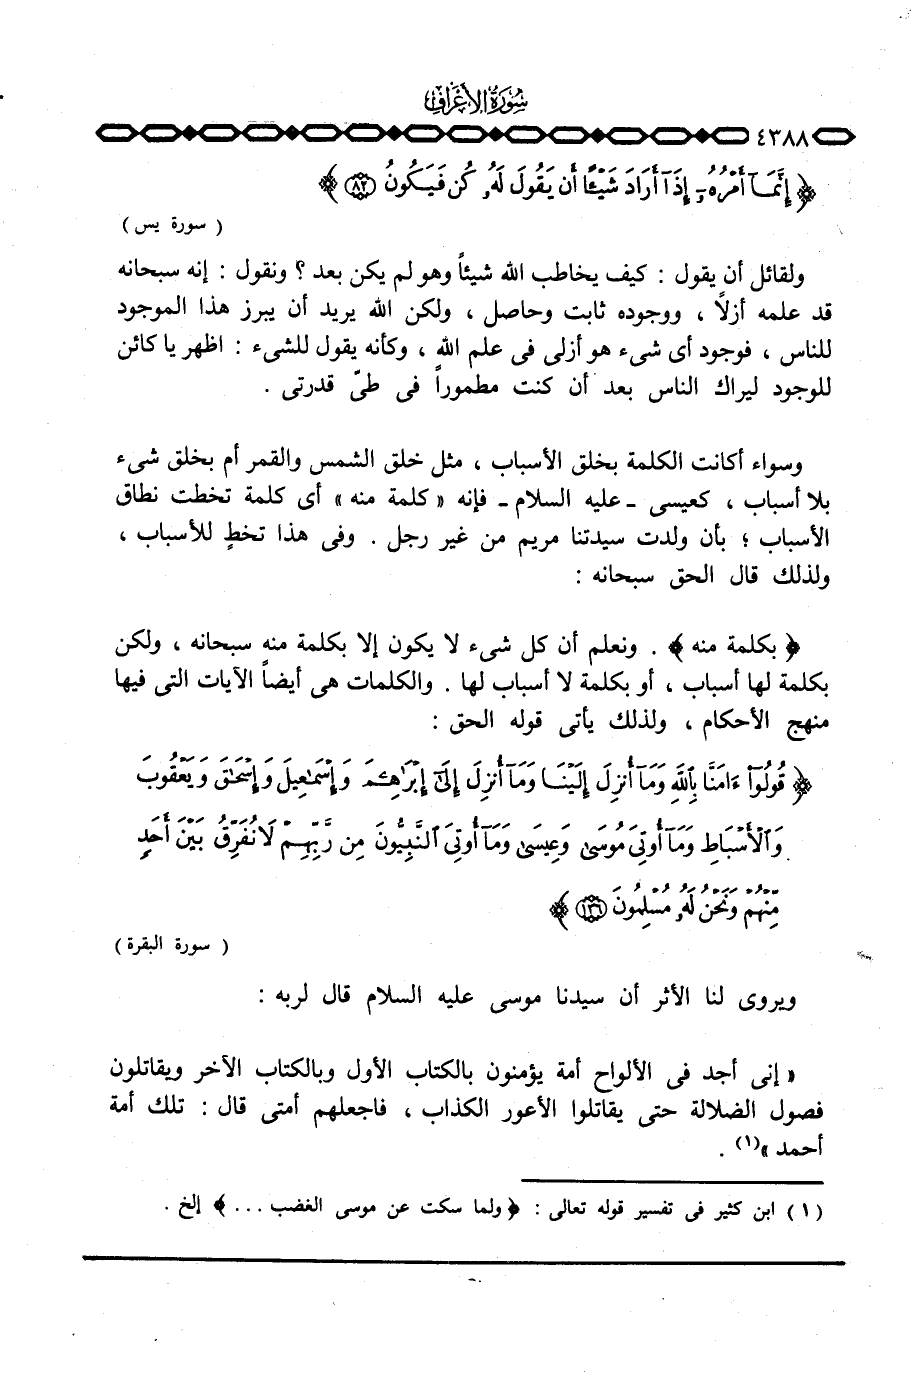 سورة الأعراف
٤٣٨٨
﴿ إِنَّمَآ أَمْرُهُۥٓ إِذَآ أَرَادَ شَيْـًٔا أَن يَقُولَ لَهُۥ كُن فَيَكُونُ ﴿٨٢﴾ ﴾
( سورة يس )
ولقائل أن يقول : كيف يخاطب الله شيئاً وهو لم يكن بعد ؟ ونقول : إنه سبحانه
قد علمه أزلاً ، ووجوده ثابت وحاصل ، ولكن الله يريد أن يبرز هذا الموجود
للناس ، فوجود أى شىء هو أزلى فى علم الله ، وكأنه يقول للشىء : اظهر يا كائن
للوجود ليراك الناس بعد أن كنت مطموراً فى طىّ قدرتى .
وسواء أكانت الكلمة بخلق الأسباب ، مثل خلق الشمس والقمر أم بخلق شىء
بلا أسباب ، كعيسى ـ عليه السلام ـ فإنه « كلمة منه » أى كلمة تخطت نطاق
الأسباب ؛ بأن ولدت سيدتنا مريم من غير رجل . وفى هذا تخطٍ للأسباب ،
ولذلك قال الحق سبحانه :
﴿ بكلمة منه ﴾ . ونعلم أن كل شىء لا يكون إلا بكلمة منه سبحانه ، ولكن
بكلمة لها أسباب ، أو بكلمة لا أسباب لها . والكلمات هى أيضاً الآيات التى فيها
منهج الأحكام ، ولذلك يأتى قوله الحق :
﴿ قُولُوٓا۟ ءَامَنَّا بِٱللَّهِ وَمَآ أُنزِلَ إِلَيْنَا وَمَآ أُنزِلَ إِلَىٰٓ إِبْرَٰهِـۧمَ وَإِسْمَٰعِيلَ وَإِسْحَٰقَ وَيَعْقُوبَ
وَٱلْأَسْبَاطِ وَمَآ أُوتِىَ مُوسَىٰ وَعِيسَىٰ وَمَآ أُوتِىَ ٱلنَّبِيُّونَ مِن رَّبِّهِمْ لَا نُفَرِّقُ بَيْنَ أَحَدٍ
مِّنْهُمْ وَنَحْنُ لَهُۥ مُسْلِمُونَ ﴿١٣٦﴾ ﴾
( سورة البقرة )
ويروى لنا الأثر أن سيدنا موسى عليه السلام قال لربه :
« إنى أجد فى الألواح أمة يؤمنون بالكتاب الأول وبالكتاب الآخر ويقاتلون
فصول الضلالة حتى يقاتلوا الأعور الكذاب ، فاجعلهم أمتى قال : تلك أمة
أحمد »(١) .
(١) ابن كثير فى تفسير قوله تعالى : ﴿ ولما سكت عن موسى الغضب ... ﴾ إلخ .